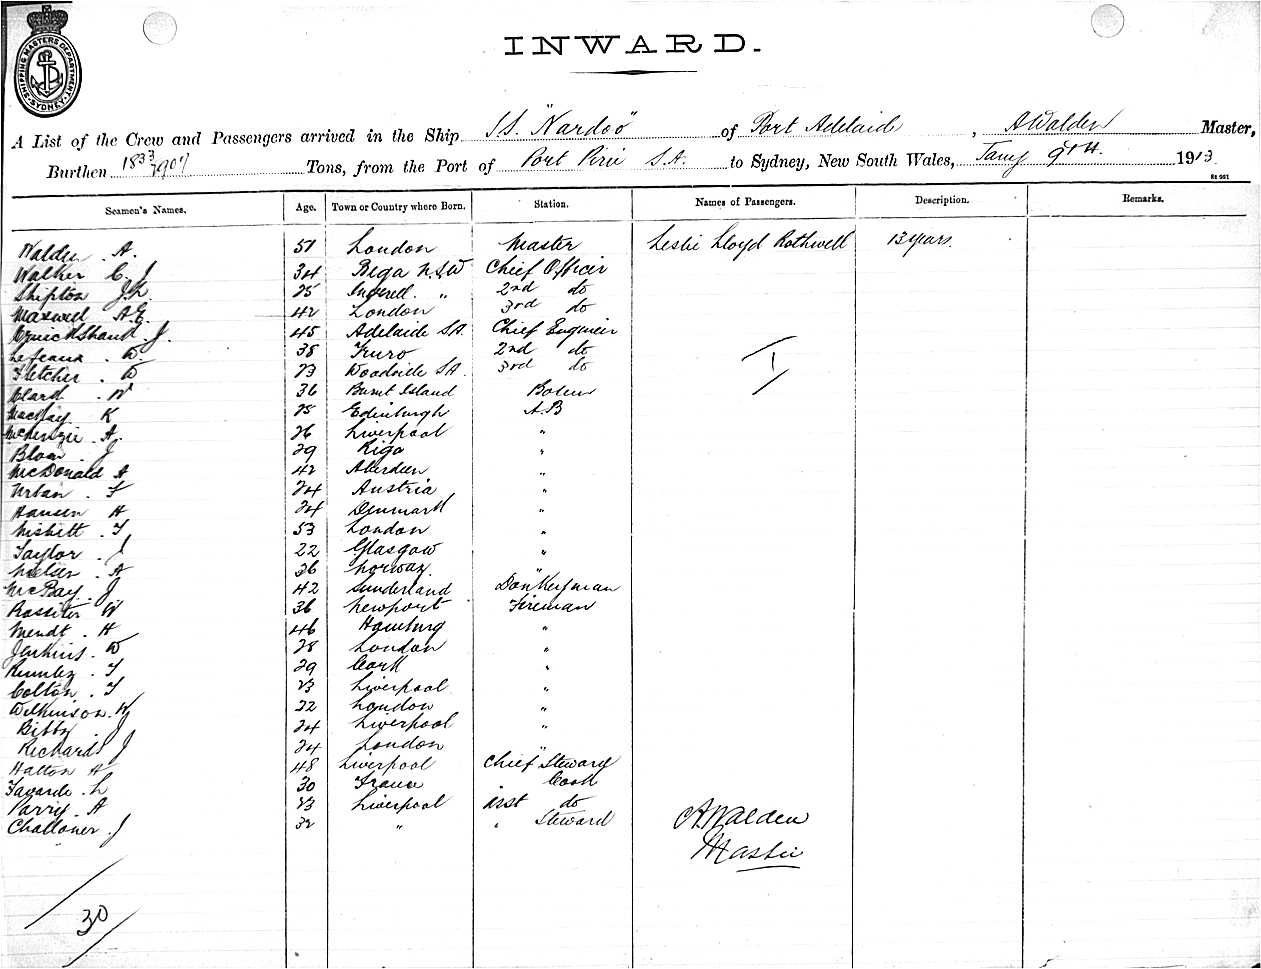 SHIPPING MASTERS DEPARTMENT SYDNEY
INWARD.
A List of the Crew and Passengers arrived in the Ship S.S. "Nardoo" of Port Adelaide, A Walden Master,
Burthen 1833/2907 Tons, from the Port of Port Pirie S.A. to Sydney, New South Wales, Jany 9th. 1913
Seamen's Names. Age. Town or Country where Born. Station. Names of Passengers. Description. Remarks.
Walden . A. 51 London Master Leslie Lloyd Rothwell 13 years.
Walker C. J 34 Bega N.S.W Chief Officer
Shipton J.L. 25 Inverell. " 2nd do
Maxwell A.E. 42 London 3rd do
Cruickshand . J. 45 Adelaide S.A. Chief Engineer
W. 38 Truro 2nd do
Fletcher . W 23 Woodside S.A. 3rd do
Beard . W 36 Burnt Island Bosun
MacKay K 25 Edinburgh A.B
McKenzie . A. 26 Liverpool "
Bloom . J 29 Riga "
McDonald A 42 Aberdeen "
Urban . F 24 Austria "
Hansen H 24 Denmark "
Nisbett . T 53 London "
Taylor . J 22 Glasgow "
Nielsen . A 26 Norway. "
McBay . J 42 Sunderland Donkeyman
Rossiter W 36 Newport Fireman
Mendt . H 46 Hamburg "
Jenkins . W 28 London "
T 29 Cork "
Colton . T 23 Liverpool "
Wilkinson . W 22 London "
Bibby . J 24 Liverpool "
Richards J 24 London "
Hatton H 48 Liverpool Chief Steward
L 30 France " Cook
Parry . A 23 Liverpool asst do
Challoner . J 32 " " Steward
A. Walden
Master
30